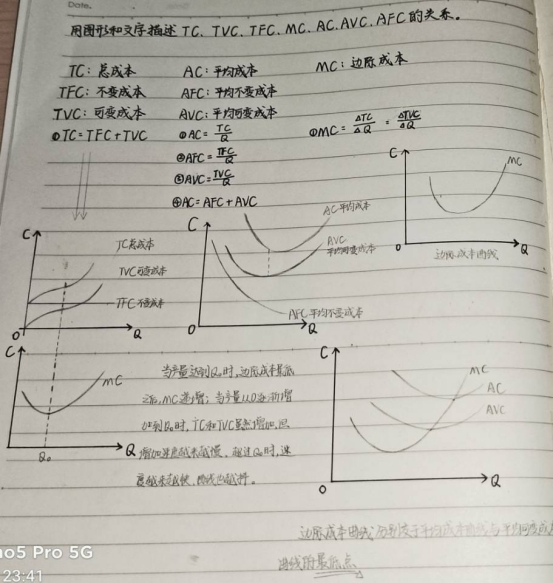 Date.
用图形和文字描述 TC、TVC、TFC、MC、AC、AVC、AFC的关系。
TC：总成本 AC：平均成本 MC：边际成本
TFC：不变成本 AFC：平均不变成本
TVC：可变成本 AVC：平均可变成本
①TC=TFC+TVC ①AC=TC/Q ①MC=ΔTC/ΔQ=ΔTVC/ΔQ
②AFC=TFC/Q
③AVC=TVC/Q
④AC=AFC+AVC
C MC
O 边际成本曲线 Q
C TC总成本
TVC可变成本
TFC不变成本
O Q
C AC平均成本
AVC
平均可变成本
AFC平均不变成本
O Q
C MC
Q₀ Q
当产量达到Q₀时，边际成本最低
之后，MC递增；当产量从0逐渐增
加到Q₀时，TC和TVC虽然增加，但
增加速度越来越慢，超过Q₀时，速
度越来越快，曲线也越斜。
C MC
AC
AVC
O Q
边际成本曲线分别交于平均成本曲线与平均可变成
曲线的最低点
no5 Pro 5G
23:41